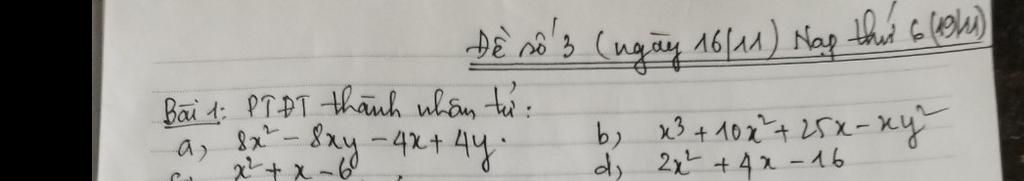 Đề số 3 (ngày 16/11) Nạp thứ 6 (19/11)
Bài 1: PTĐT thành nhân tử:
a, 8x² - 8xy - 4x + 4y. b, x³ + 10x² + 25x - xy²
c, x² + x - 6 d, 2x² + 4x - 16